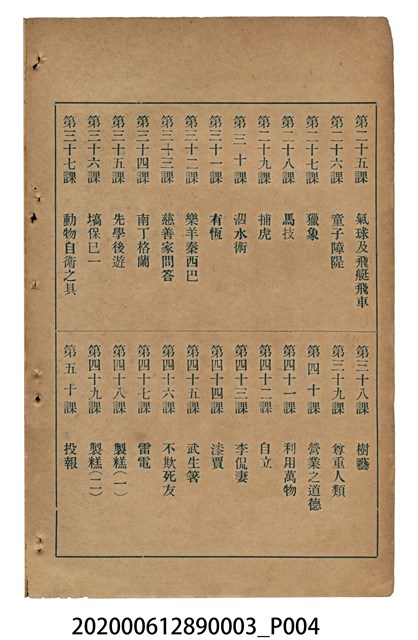 第二十五課 氣球及飛艇飛車
第二十六課 童子障隄
第二十七課 獵象
第二十八課 馬技
第二十九課 捕虎
第三十課 泅水術
第三十一課 有恆
第三十二課 樂羊秦西巴
第三十三課 慈善家問答
第三十四課 南丁格蘭
第三十五課 先學後遊
第三十六課 塙保巳一
第三十七課 動物自衛之具
第三十八課 樹藝
第三十九課 尊重人類
第四十課 營業之道德
第四十一課 利用萬物
第四十二課 自立
第四十三課 李侃妻
第四十四課 漆賈
第四十五課 武生箸
第四十六課 不欺死友
第四十七課 雷電
第四十八課 製糕(一)
第四十九課 製糕(二)
第五十課 投報
202000612890003_P004